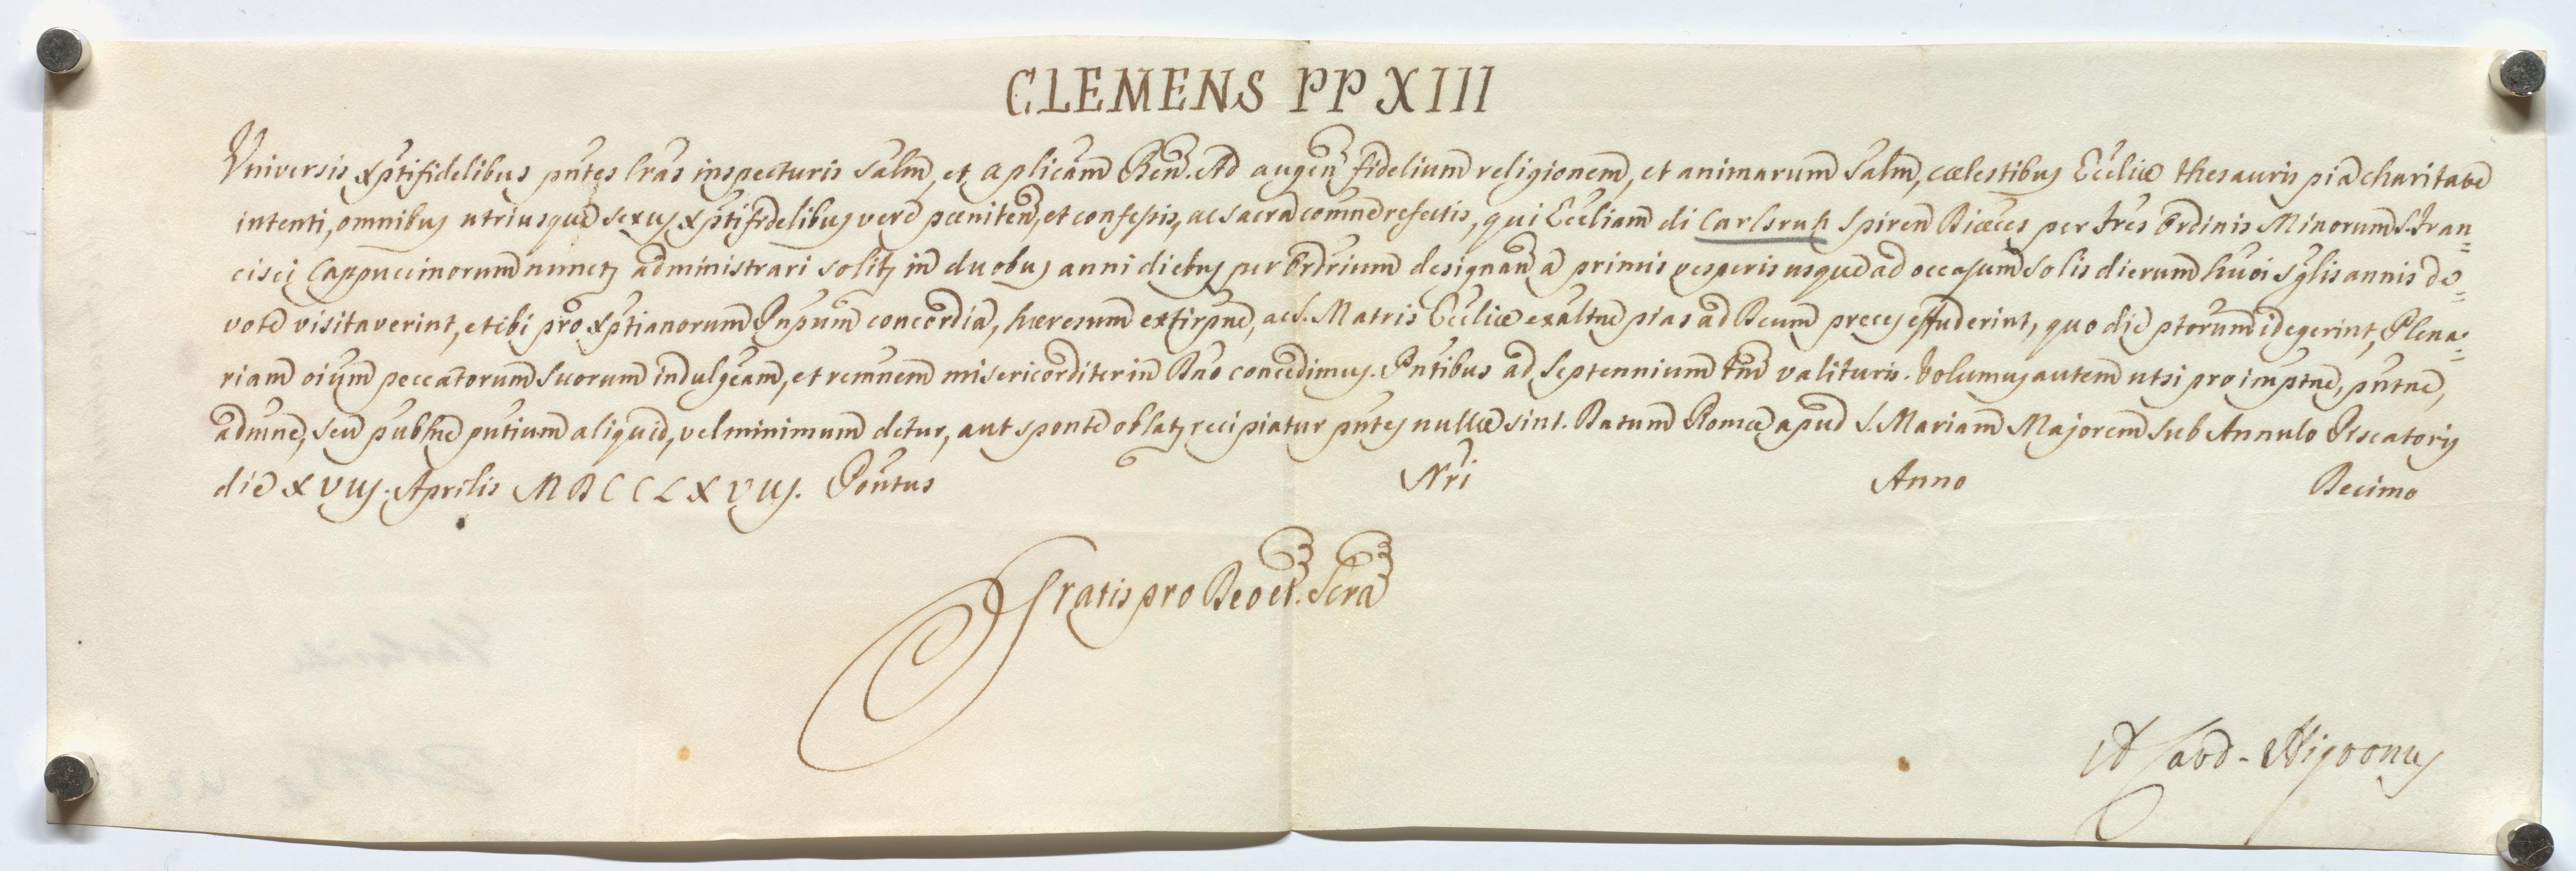 CLEMENS PP XIII
Universis xptifidelibus pntes lras inspecturis Salm, et aplicam Ben. Ad augen fidelium religionem, et animarum Salm, cælestibus Ecclie thesauris pia charitate
intenti, omnibus utriusque sexus xptifidelibus vere pœniten, et confessis, ac sacra comne refectis, qui Eccliam di Carlsruh Spiren Diœces per Fres Ordinis Minorum S. Fran=
cisci Cappuccinorum nunctj administrari solitj in duobus anni diebus per Ordrium designan a primis vesperis usque ad occasum solis dierum huoi sglis annis de=
vote visitaverint, et ibi pro xptianorum Pnpum concordia, hæresum extirpne, ac S. Matris Ecclie exaltne pias ad Deum preces effuderint, quo die ptorum id egerint, Plena=
riam oium peccatorum suorum indulgeam, et remnem misericorditer in Dno concedimus. Pntibus ad Septennium tm valituris. Volumus autem ut si pro imptne, pntne,
admne, seu pubne pntium aliquid, vel minimum detur, aut sponte oblatj recipiatur pntes nullæ sint. Datum Romæ apud S. Mariam Majorem sub Annulo Piscatoris
die XVIJ. Aprilis MDCCLXVIJ. Pontus Nri Anno Decimo
Gratis pro Deo et Scra
Card.